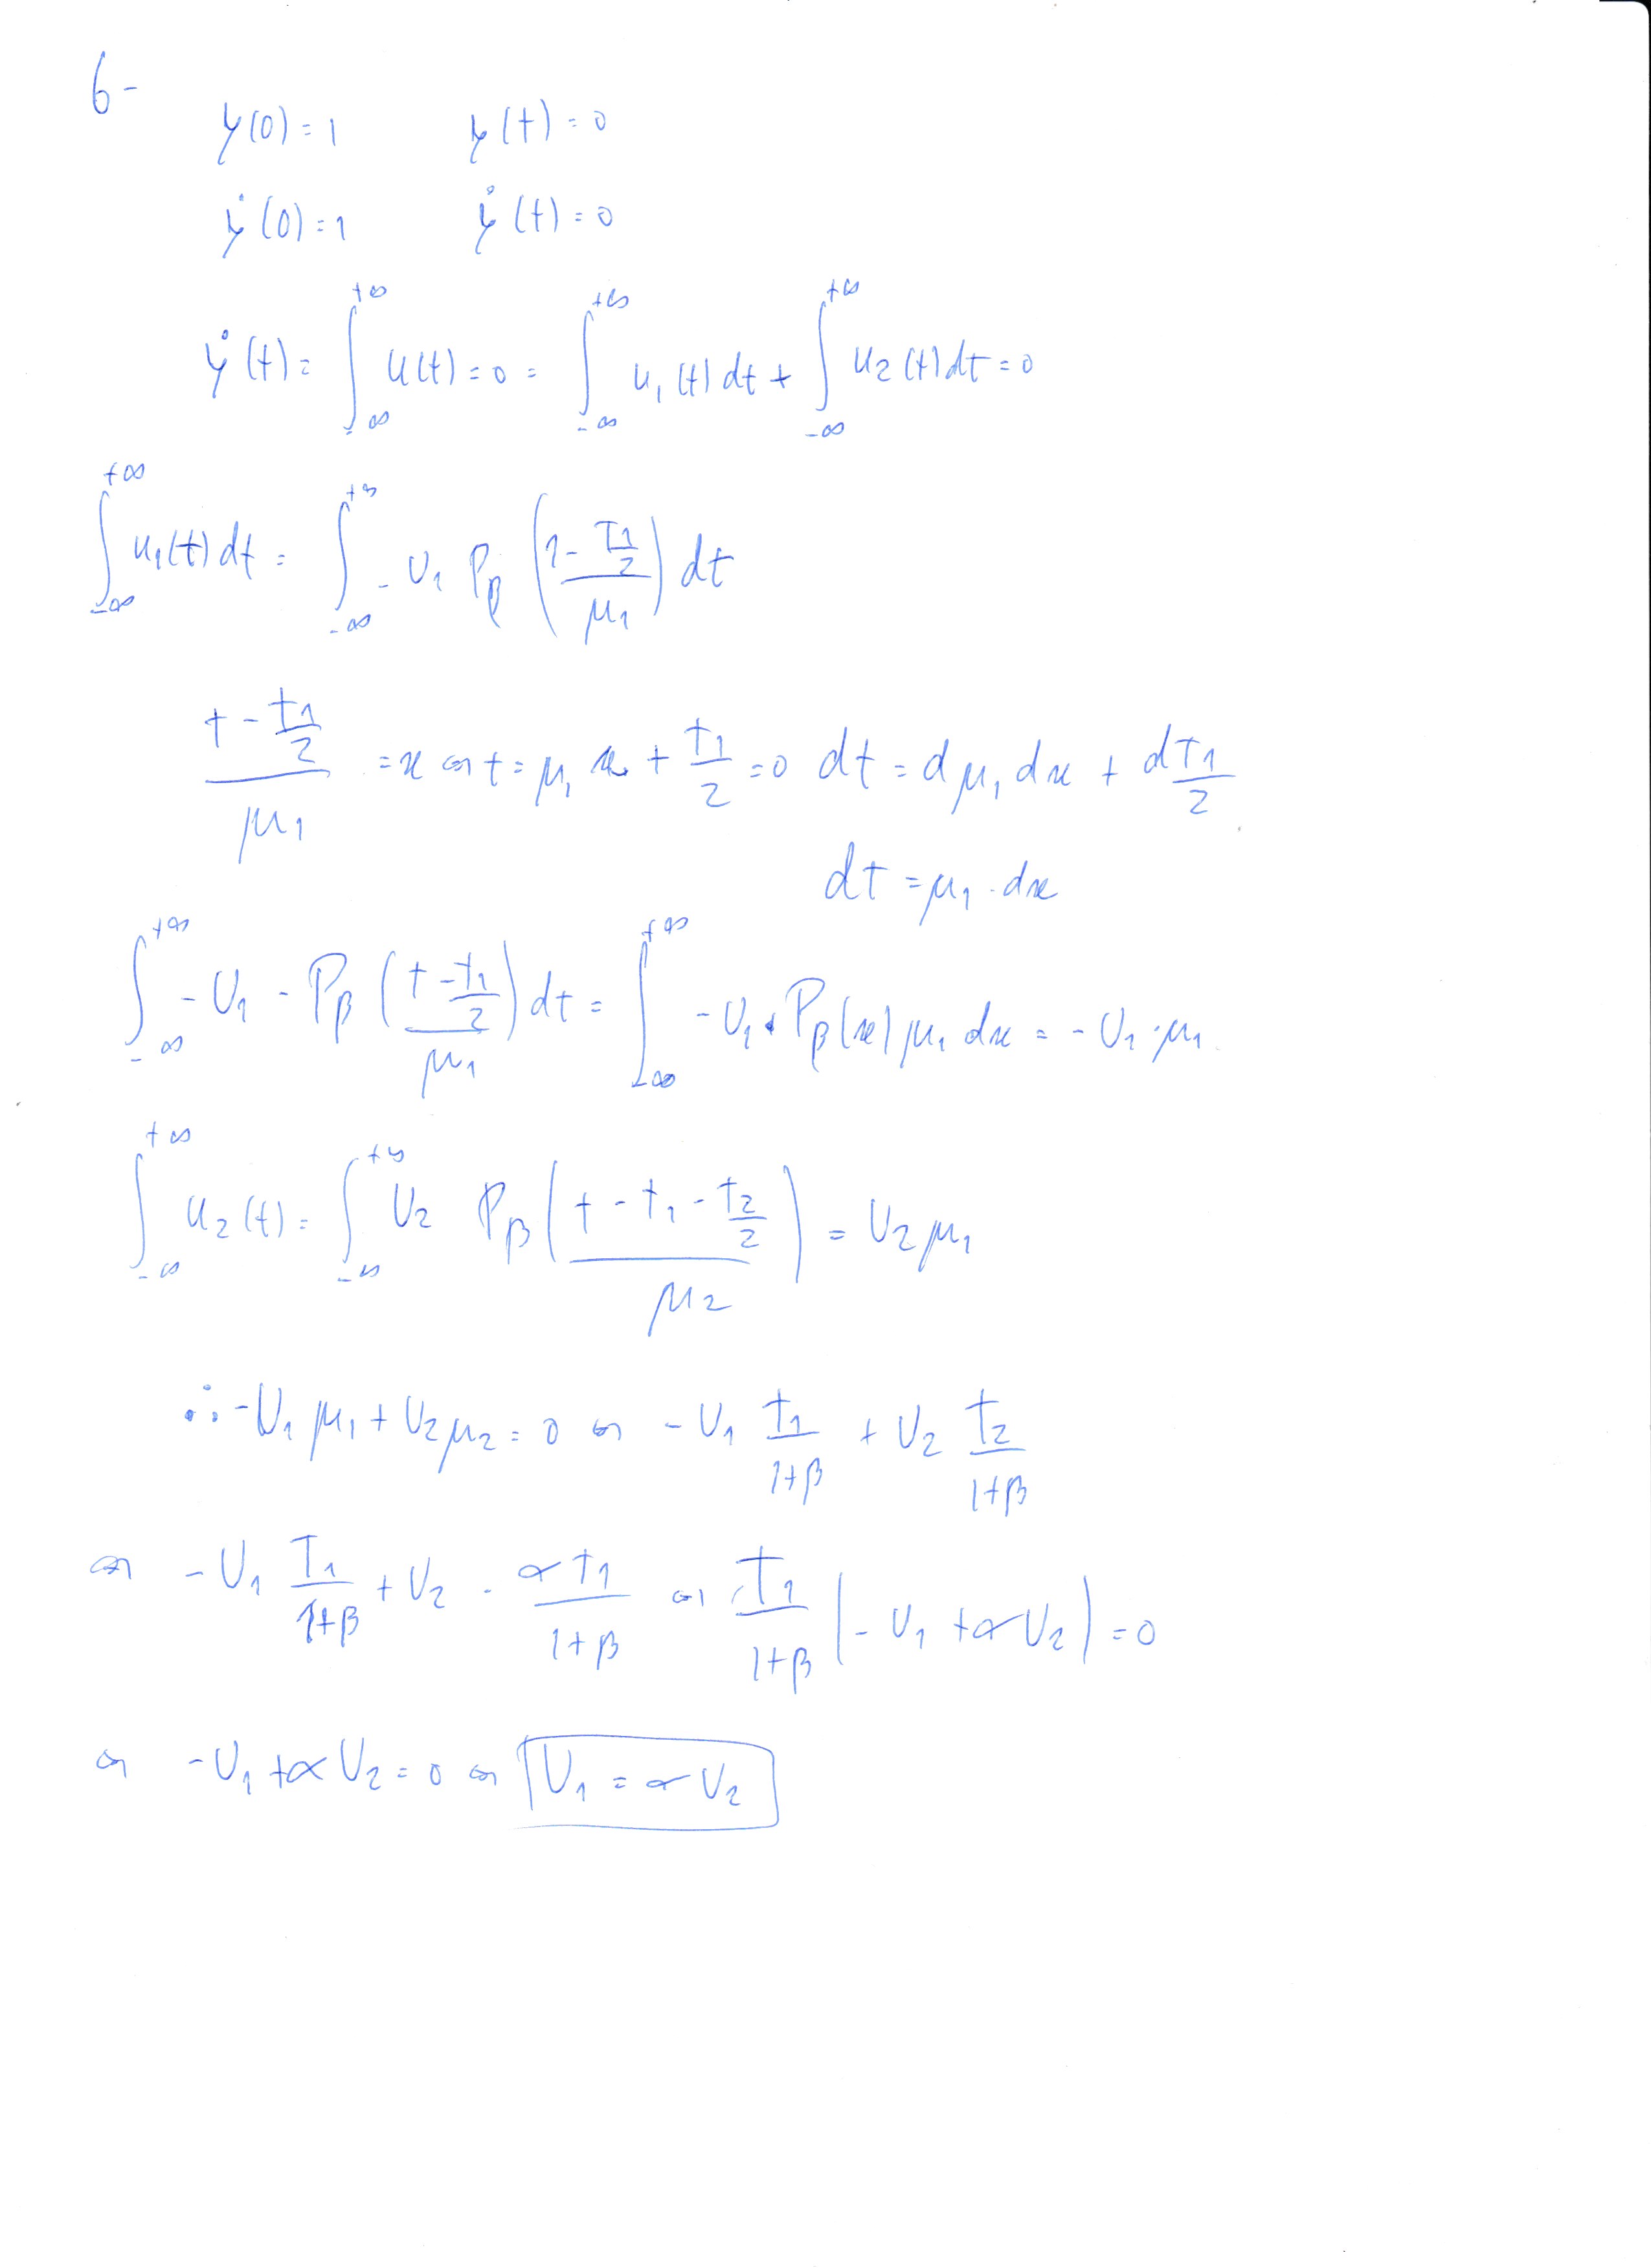 6-
y(0)=1 y(t)=0
ẏ(0)=1 ẏ(t)=0
ẏ(t)= ∫_{-∞}^{+∞} u(t)=0 = ∫_{-∞}^{+∞} u₁(t)dt + ∫_{-∞}^{+∞} u₂(t)dt=0
∫_{-∞}^{+∞} u₁(t)dt = ∫_{-∞}^{+∞} -U₁ P_β ((1-T₁/2)/μ₁) dt
(t-t₁/2)/μ₁ =x ⇔ t=μ₁ x + t₁/2 ⇒ dt=dμ₁dx + dT₁/2
dt=μ₁·dx
∫_{-∞}^{+∞} -U₁ - P_β ((t-t₁/2)/μ₁) dt = ∫_{-∞}^{+∞} -U₁·P_β(x)μ₁dx = -U₁·μ₁
∫_{-∞}^{+∞} u₂(t)= ∫_{-∞}^{+∞} U₂ P_β ((t-t₁-t₂/2)/μ₂) = U₂μ₁
∴ -U₁μ₁+U₂μ₂=0 ⇔ -U₁ t₁/(1+β) + U₂ t₂/(1+β)
⇔ -U₁ T₁/(1+β) + U₂ · αt₁/(1+β) ⇔ T₁/(1+β) (-U₁+αU₂)=0
⇔ -U₁+αU₂=0 ⇔ U₁=αU₂